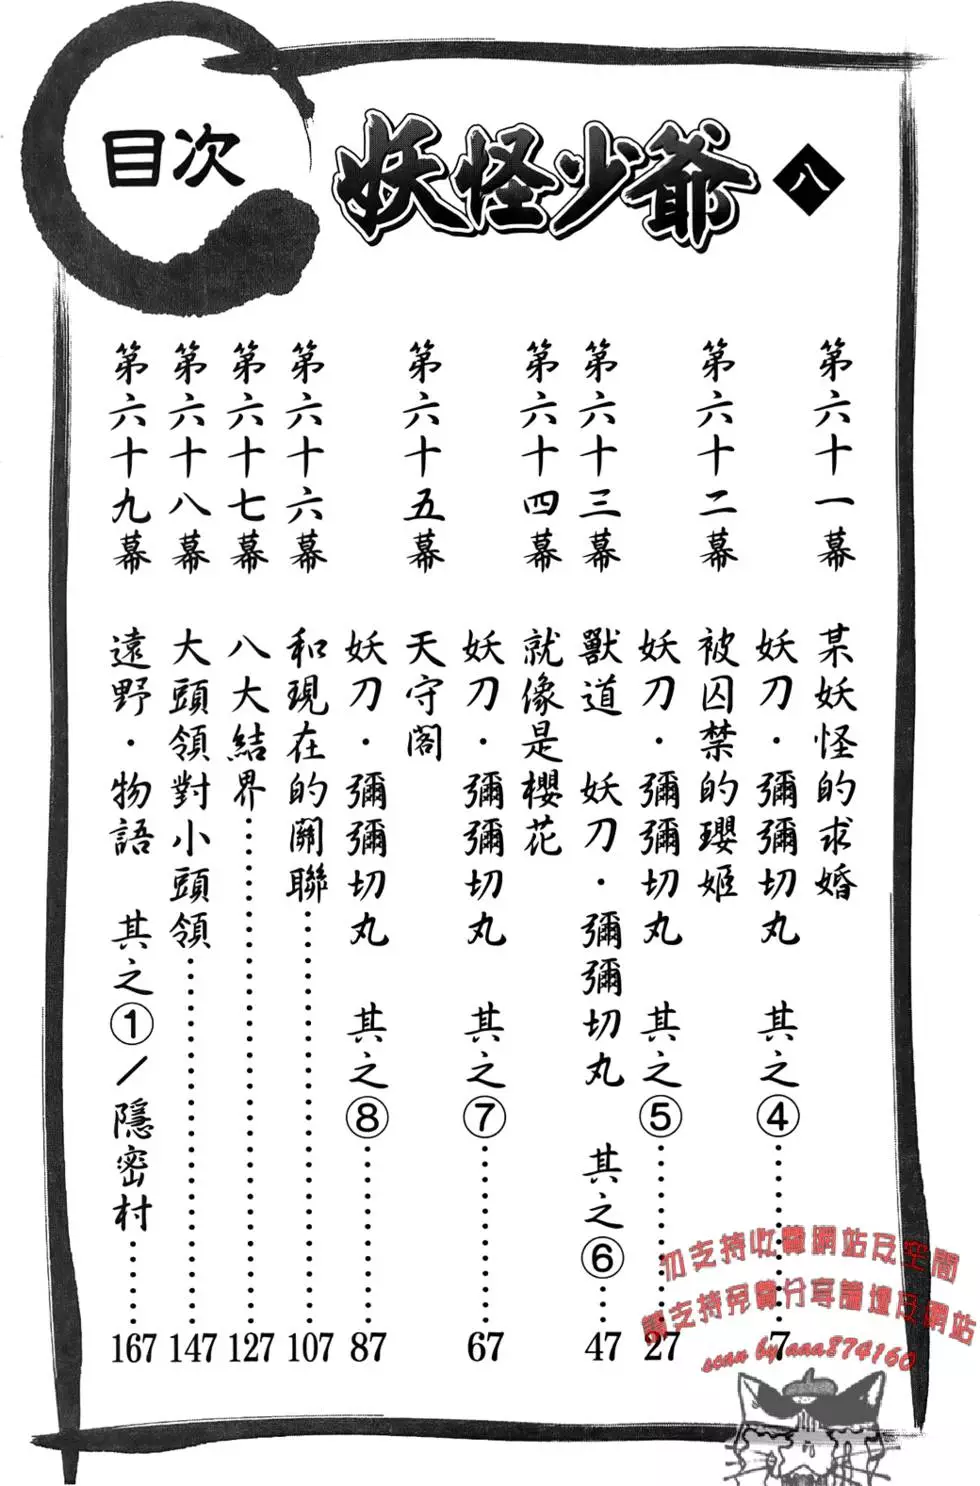 目次
妖怪少爺 八
第六十一幕 某妖怪的求婚
妖刀・彌彌切丸 其之④……7
第六十二幕 被囚禁的瓔姬
妖刀・彌彌切丸 其之⑤……27
第六十三幕 獸道 妖刀・彌彌切丸 其之⑥……47
第六十四幕 就像是櫻花
妖刀・彌彌切丸 其之⑦……67
第六十五幕 天守閣
妖刀・彌彌切丸 其之⑧……87
第六十六幕 和現在的關聯……107
第六十七幕 八大結界……127
第六十八幕 大頭領對小頭領……147
第六十九幕 遠野・物語 其之①／隱密村……167
勿支持收費網站及空間
請支持免費分享論壇及網站
scan by aaa874160